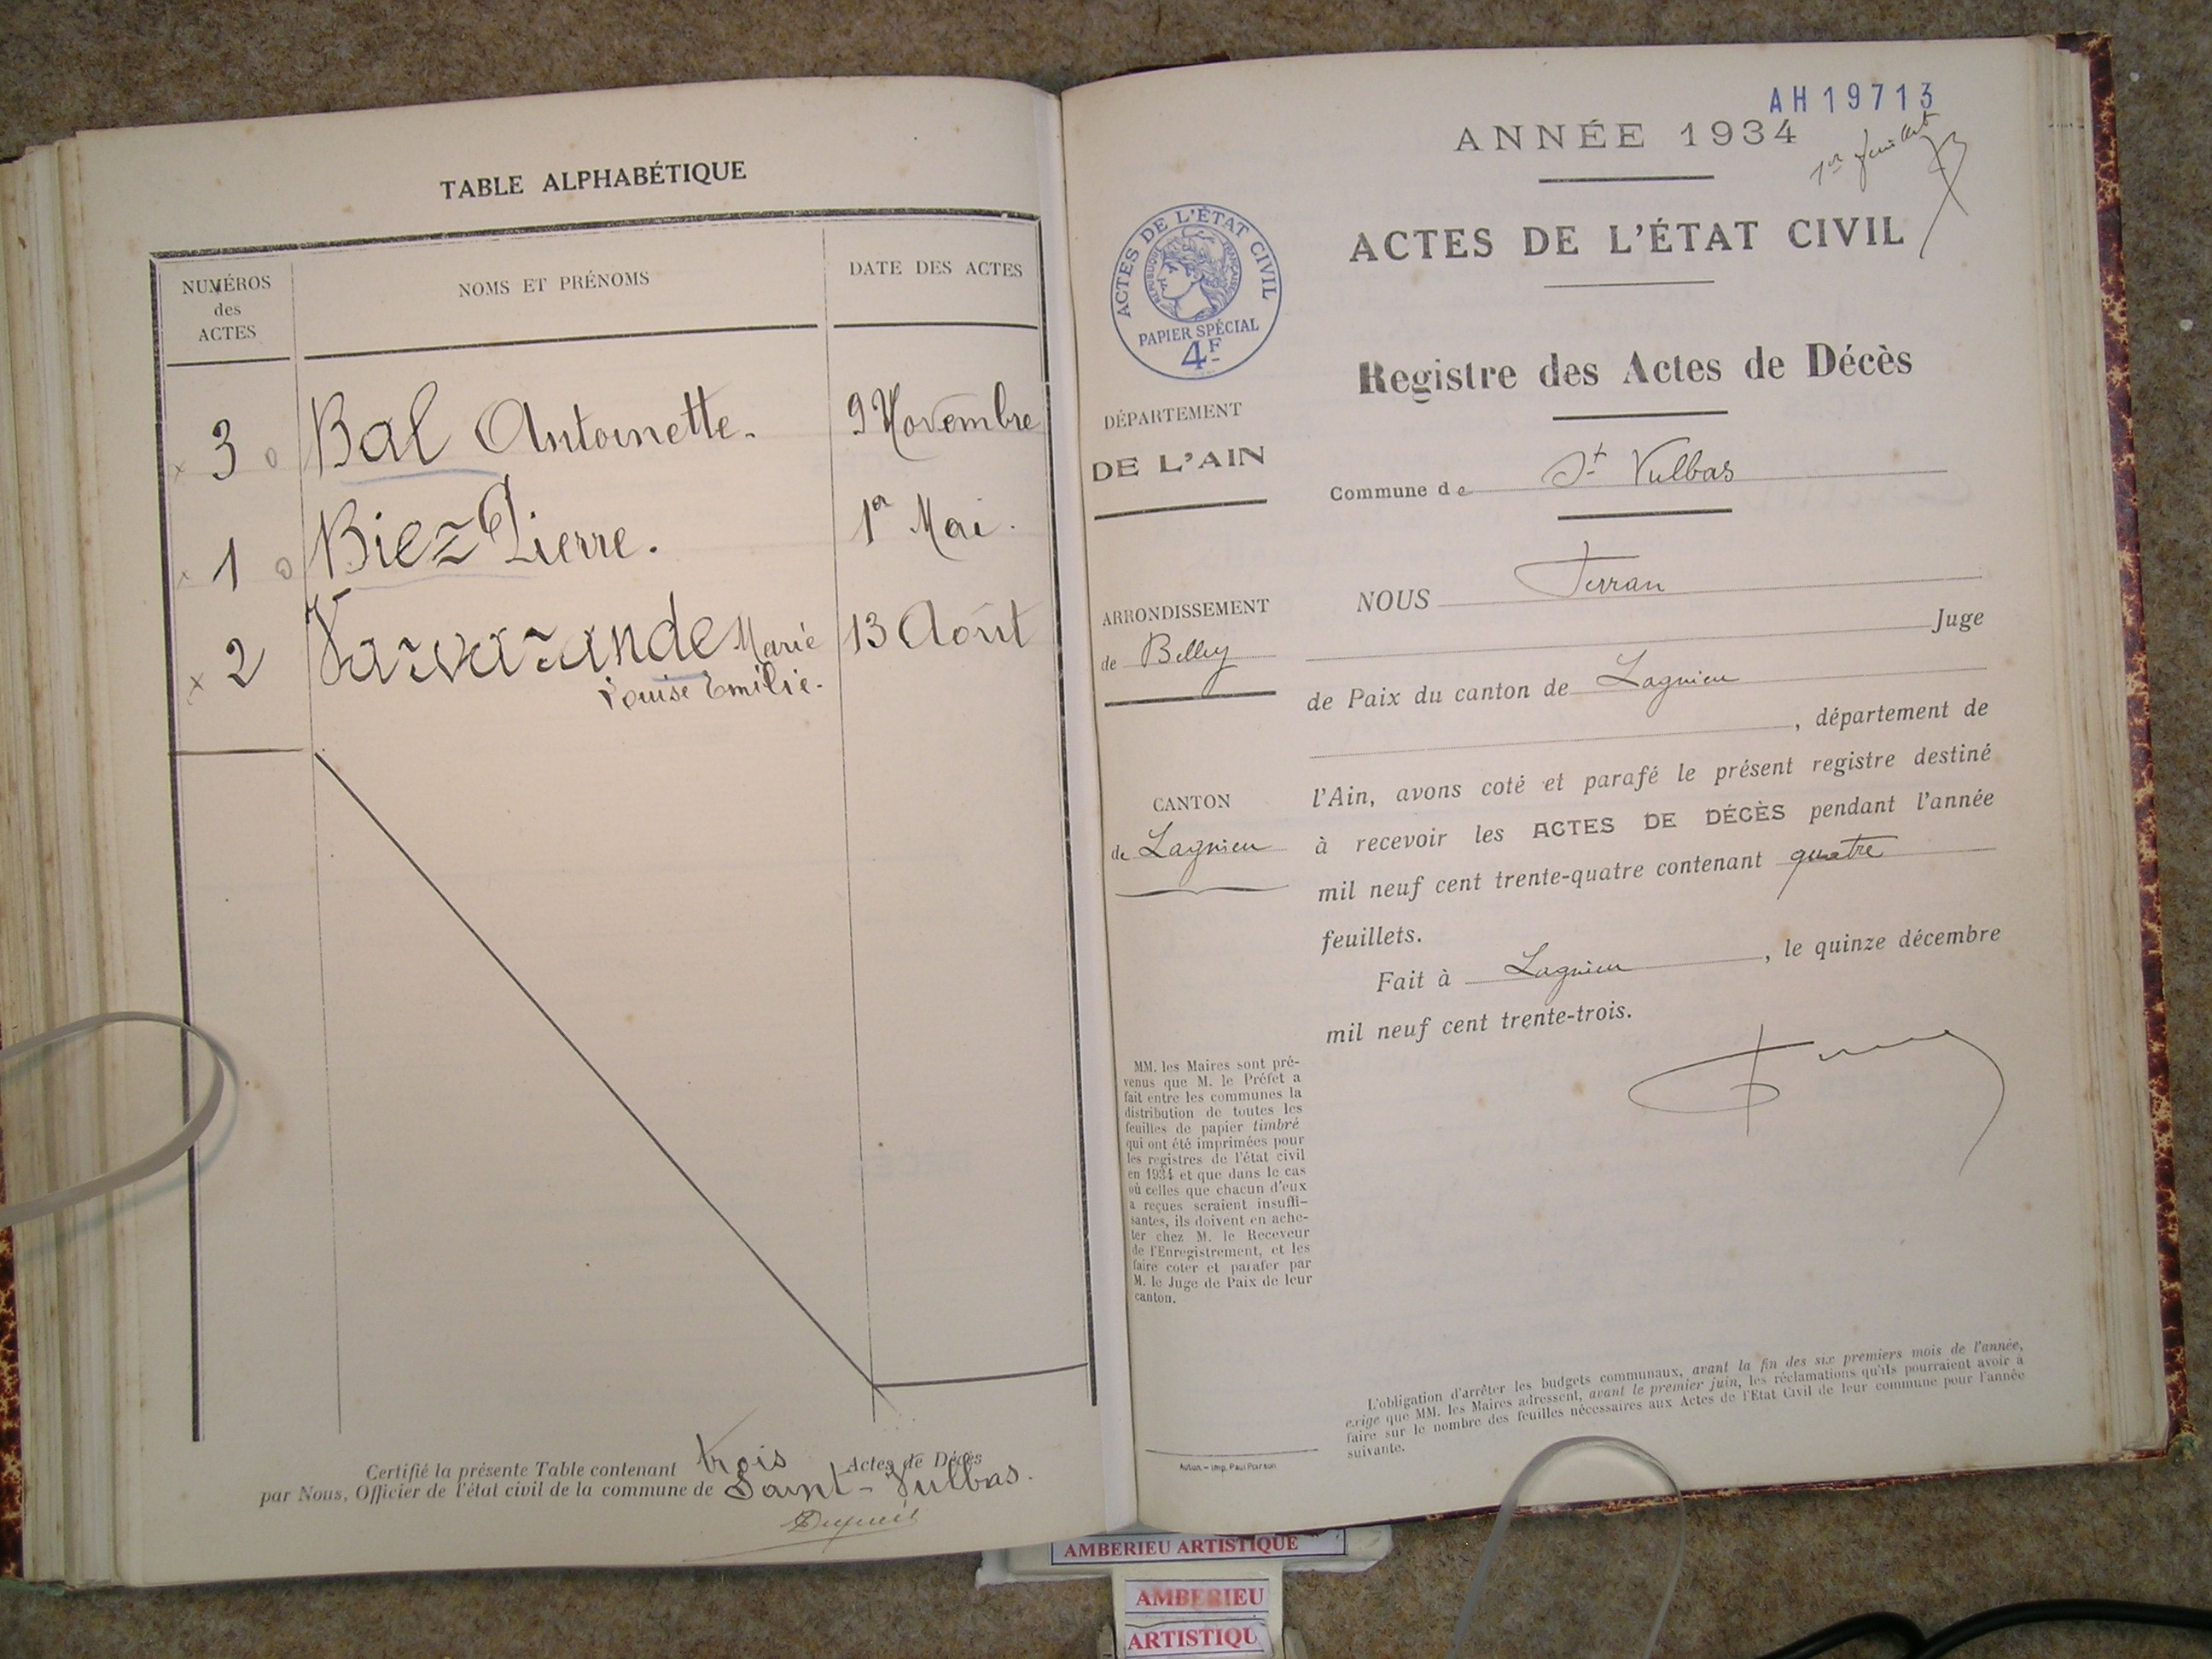 TABLE ALPHABÉTIQUE
NUMÉROS
des
ACTES
NOMS ET PRÉNOMS
DATE DES ACTES
3 Bal Antoinette. 9 Novembre
1 Biez Pierre. 1er Mai.
2 Varvarande Marie 13 Août
Louise Emilie.
Certifié la présente Table contenant trois Actes de Décès
par Nous, Officier de l'état civil de la commune de Saint-Vulbas.
AH19713
ANNÉE 1934
1er feuillet
ACTES DE L'ÉTAT CIVIL
ACTES DE L'ÉTAT CIVIL
RÉPUBLIQUE FRANÇAISE
PAPIER SPÉCIAL
4F
Registre des Actes de Décès
DÉPARTEMENT
DE L'AIN
Commune de St Vulbas
ARRONDISSEMENT
de Belley
CANTON
de Lagnieu
NOUS Ferran
Juge
de Paix du canton de Lagnieu
, département de
l'Ain, avons coté et parafé le présent registre destiné
à recevoir les ACTES DE DÉCÈS pendant l'année
mil neuf cent trente-quatre contenant quatre
feuillets.
Fait à Lagnieu, le quinze décembre
mil neuf cent trente-trois.
MM. les Maires sont pré-
venus que M. le Préfet a
fait entre les communes la
distribution de toutes les
feuilles de papier timbré
qui ont été imprimées pour
les registres de l'état civil
en 1934 et que dans le cas
où celles que chacun d'eux
a reçues seraient insuffi-
santes, ils doivent en ache-
ter chez M. le Receveur
de l'Enregistrement, et les
faire coter et parafer par
M. le Juge de Paix de leur
canton.
L'obligation d'arrêter les budgets communaux, avant la fin des six premiers mois de l'année,
exige que MM. les Maires adressent, avant le premier juin, les réclamations qu'ils pourraient avoir à
faire sur le nombre des feuilles nécessaires aux Actes de l'Etat Civil de leur commune pour l'année
suivante.
Autun. — Imp. Paul Poirson
AMBERIEU ARTISTIQUE
AMBERIEU
ARTISTIQU